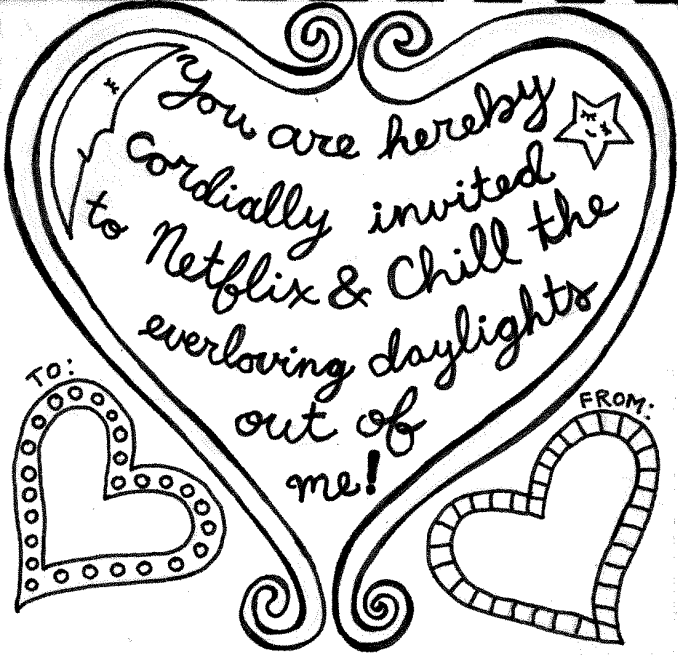 You are hereby
cordially invited
to Netflix & Chill the
everloving daylights
out of
me!
TO:
FROM: